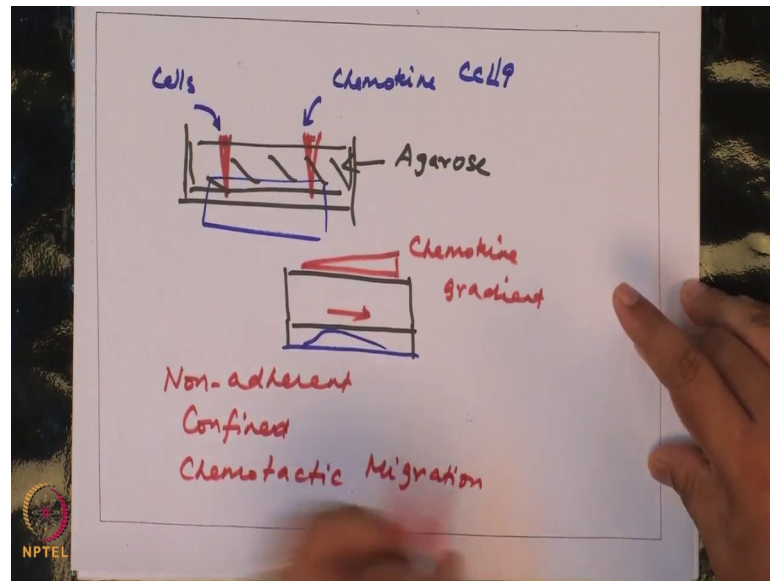 Cells
Chemokine CCL19
Agarose
Chemokine
gradient
Non-adherent
Confined
Chemotactic Migration
NPTEL